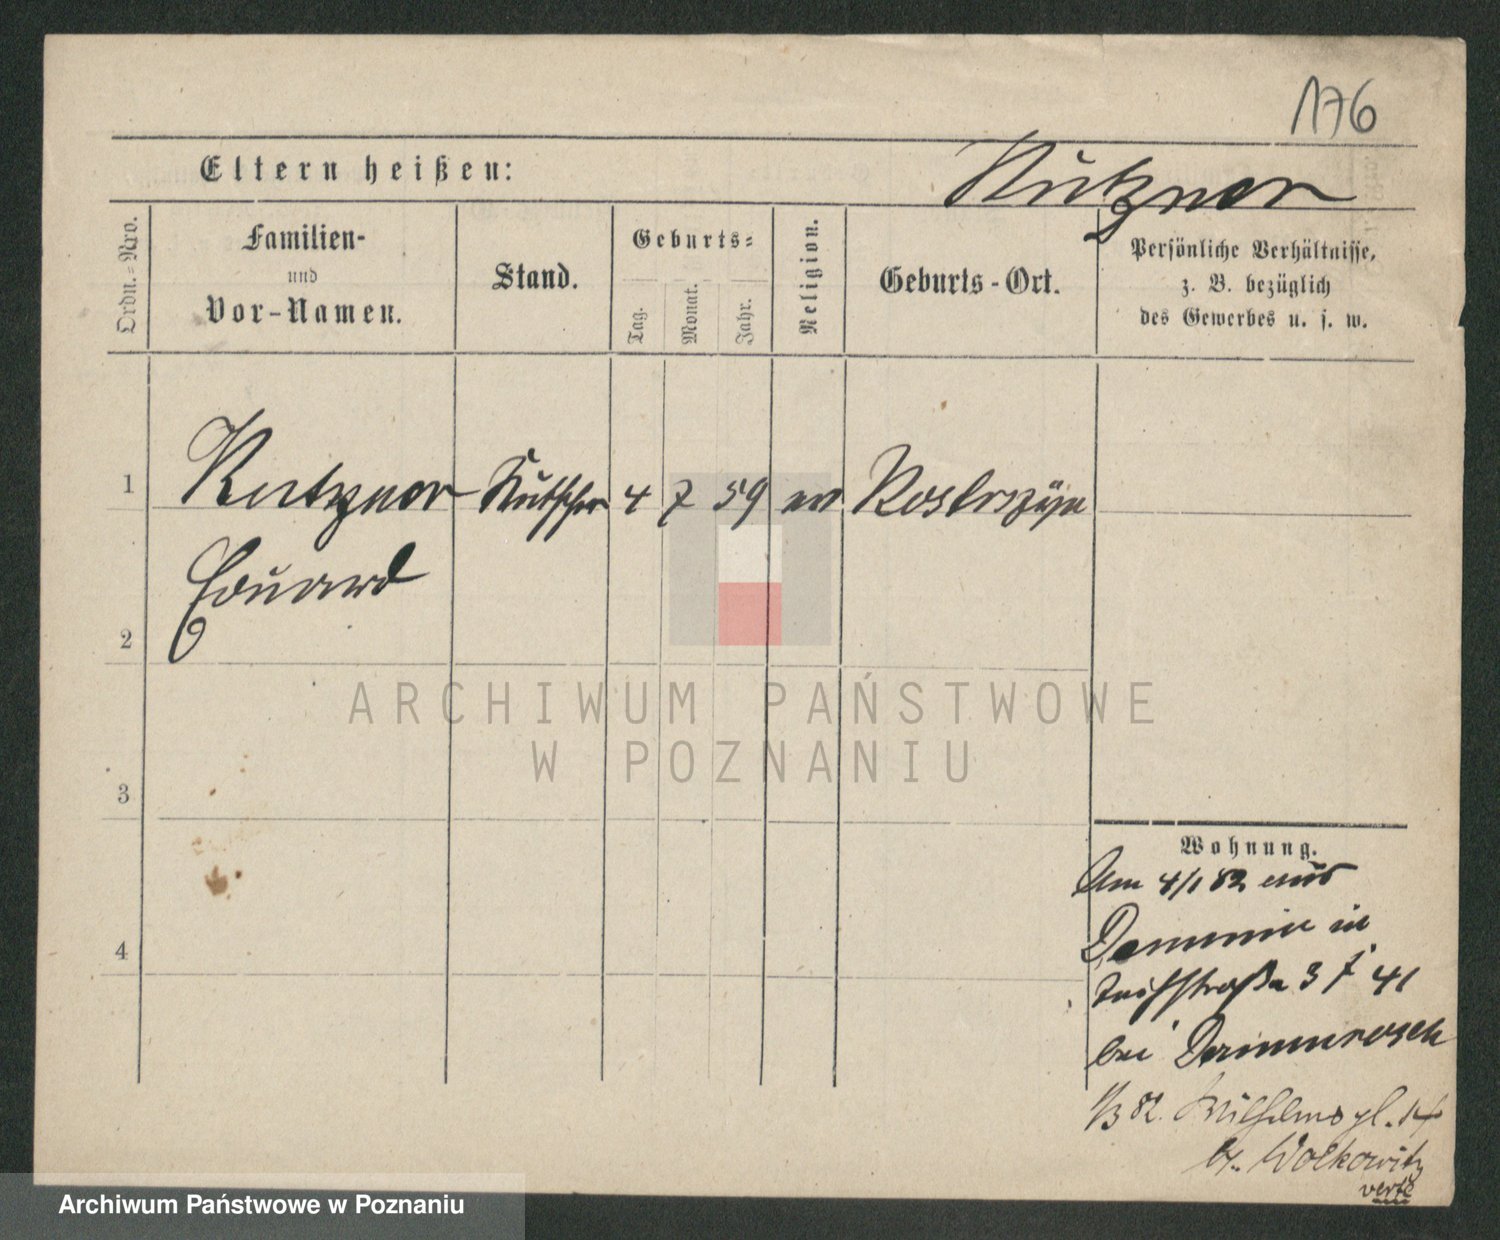 176
Eltern heißen:
Kutzner
Ordn.=Nro.
Familien-
und
Vor-Namen.
Stand.
Geburts=
Tag.
Monat.
Jahr.
Religion.
Geburts-Ort.
Persönliche Verhältnisse,
z. B. bezüglich
des Gewerbes u. s. w.
1
Kutzner Kutscher 4 7 59 ev
Eduard
2
ARCHIWUM PAŃSTWOWE
W POZNANIU
3
4
Wohnung.
Am 4/1 82 aus
in
3 41
bei
1/3 82. Wilhelmspl. 14
b. Wolkowitz
verte
Archiwum Państwowe w Poznaniu